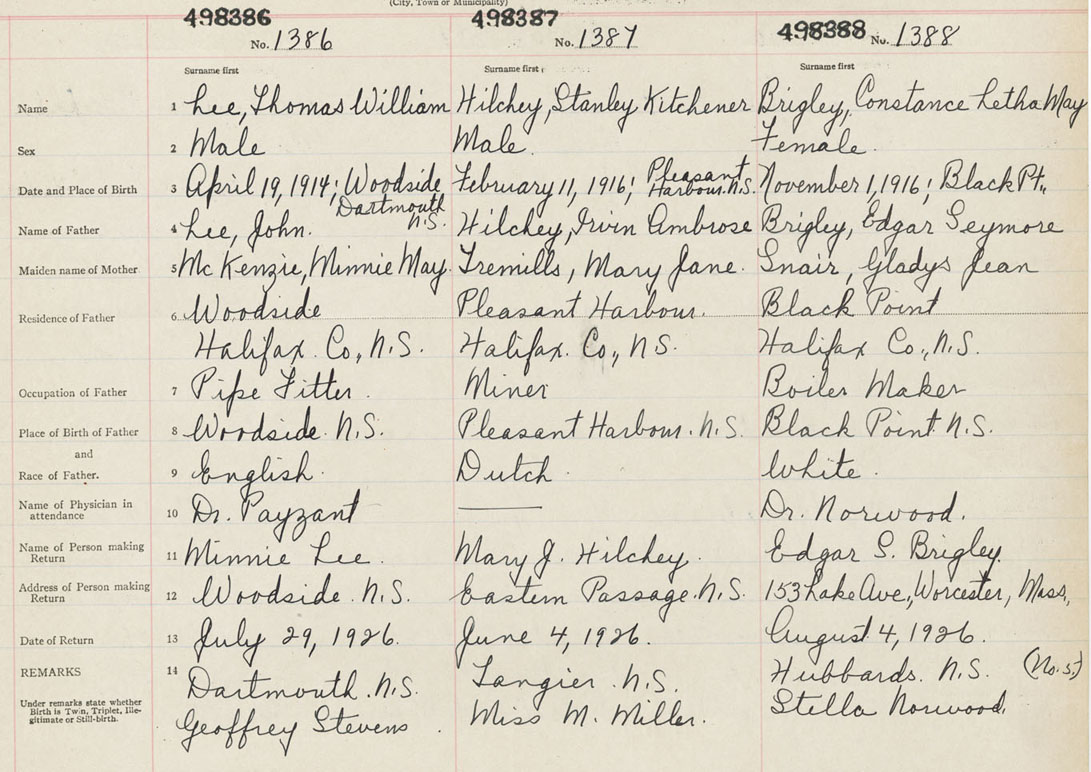 (City, Town or Municipality)
498386 498387 498388
No. 1386 No. 1387 No. 1388
Surname first Surname first Surname first
Name 1 Lee, Thomas William Hilchey, Stanley Kitchener Brigley, Constance Letha May
Sex 2 Male Male. Female.
Date and Place of Birth 3 April 19, 1914; Woodside Dartmouth N.S. February 11, 1916; Pleasant Harbour. N.S. November 1, 1916; Black Pt.,
Name of Father 4 Lee, John. Hilchey, Irvin Ambrose Brigley, Edgar Seymore
Maiden name of Mother 5 McKenzie, Minnie May. Tremills, Mary Jane. Snair, Gladys Jean
Residence of Father 6 Woodside Pleasant Harbour. Black Point
Halifax. Co., N.S. Halifax. Co., N.S. Halifax Co., N.S.
Occupation of Father 7 Pipe Fitter. Miner Boiler Maker
Place of Birth of Father 8 Woodside. N.S. Pleasant Harbour. N.S. Black Point. N.S.
and
Race of Father. 9 English. Dutch. White.
Name of Physician in attendance 10 Dr. Payzant Dr. Norwood.
Name of Person making Return 11 Minnie Lee. Mary J. Hilchey. Edgar S. Brigley.
Address of Person making Return 12 Woodside. N.S. Eastern Passage. N.S. 153 Lake Ave., Worcester, Mass,
Date of Return 13 July 29, 1926. June 4, 1926. August 4, 1926.
REMARKS 14 Dartmouth. N.S. Tangier. N.S. Hubbards. N.S. (No. 5.)
Under remarks state whether Birth is Twin, Triplet, Ille-
gitimate or Still-birth.
Geoffrey Stevens. Miss M. Miller. Stella Norwood.